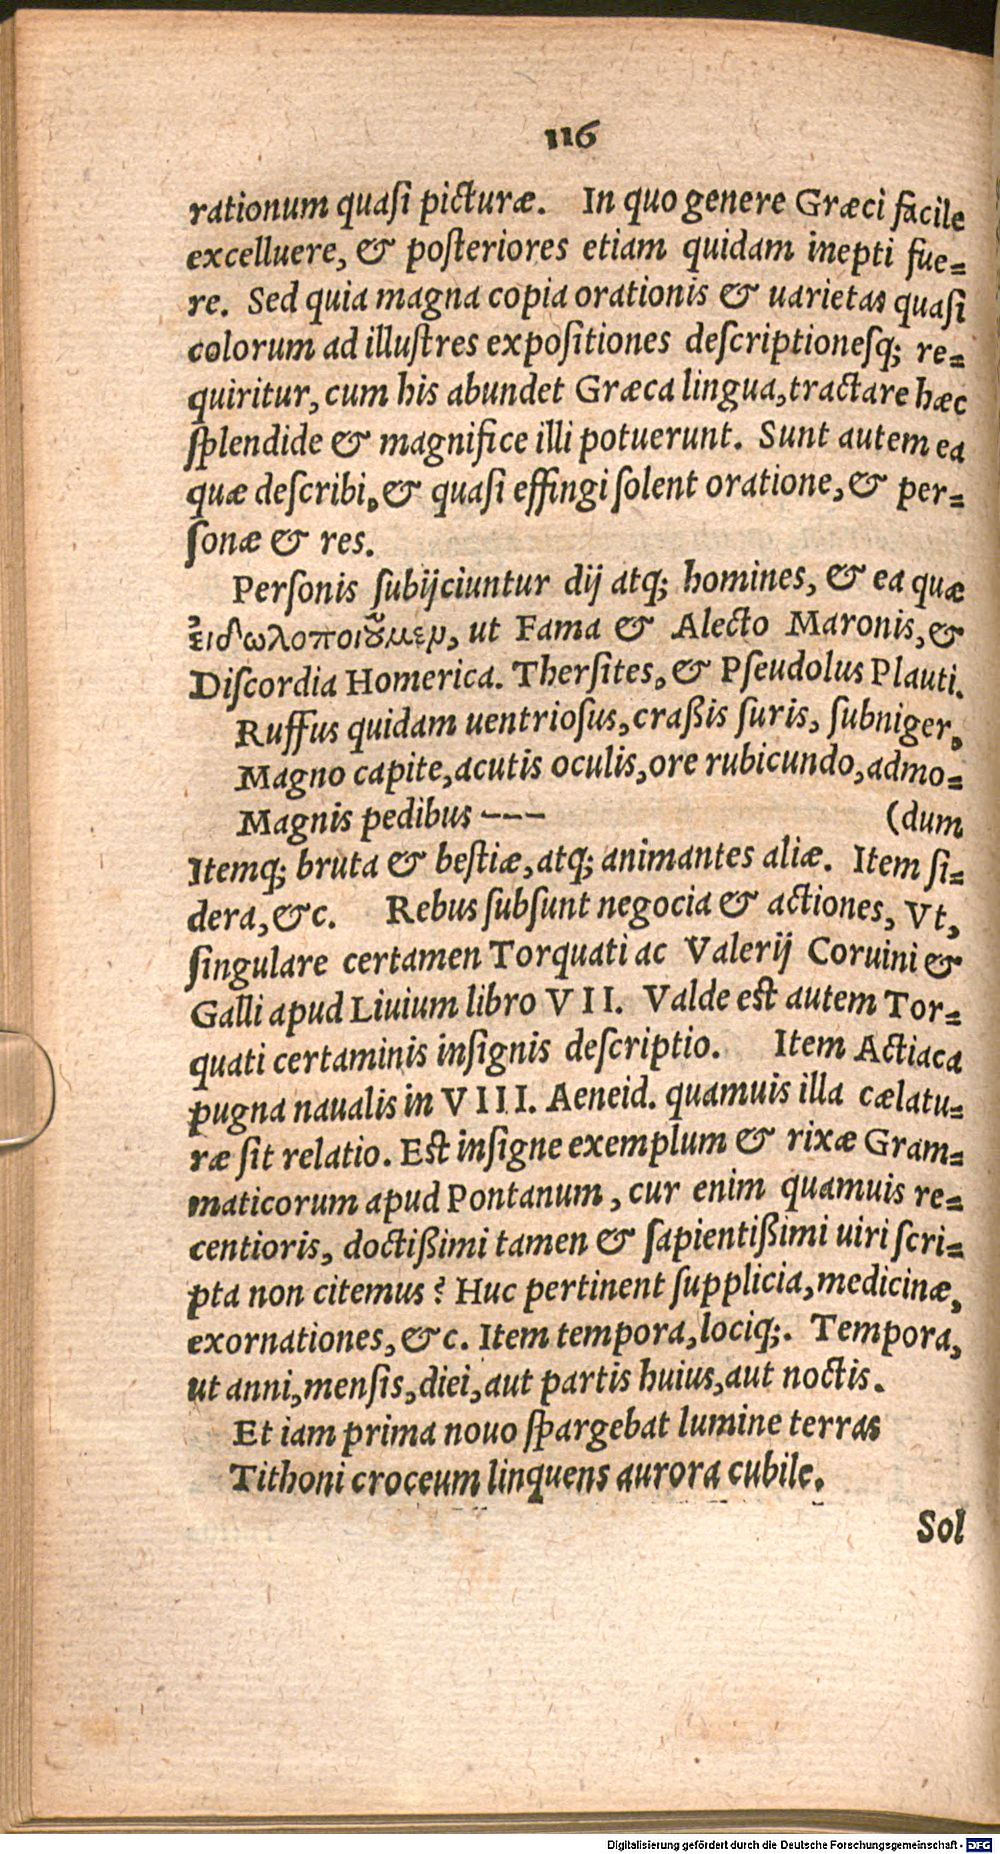 116
rationum quaſi picturæ. In quo genere Græci facile
excelluere, & poſteriores etiam quidam inepti fue=
re. Sed quia magna copia orationis & uarietas quaſi
colorum ad illuſtres expoſitiones deſcriptionesq; re=
quiritur, cum his abundet Græca lingua, tractare hæc
ſplendide & magnifice illi potuerunt. Sunt autem ea
quæ deſcribi, & quaſi effingi ſolent oratione, & per=
ſonæ & res.
Perſonis ſubijciuntur dij atq; homines, & ea quæ
ἐιδωλοποιοῦμεν, ut Fama & Alecto Maronis, &
Diſcordia Homerica. Therſites, & Pſeudolus Plauti.
Ruffus quidam uentrioſus, craßis ſuris, ſubniger,
Magno capite, acutis oculis, ore rubicundo, admo=
Magnis pedibus --- (dum
Itemq; bruta & beſtiæ, atq; animantes aliæ. Item ſi=
dera, &c. Rebus ſubſunt negocia & actiones, Vt,
ſingulare certamen Torquati ac Valerij Coruini &
Galli apud Liuium libro VII. Valde eſt autem Tor=
quati certaminis inſignis deſcriptio. Item Actiaca
pugna naualis in VIII. Aeneid. quamuis illa cælatu=
ræ ſit relatio. Eſt inſigne exemplum & rixæ Gram=
maticorum apud Pontanum, cur enim quamuis re=
centioris, doctißimi tamen & ſapientißimi uiri ſcri=
pta non citemus? Huc pertinent ſupplicia, medicinæ,
exornationes, &c. Item tempora, lociq;. Tempora,
ut anni, menſis, diei, aut partis huius, aut noctis.
Et iam prima nouo ſpargebat lumine terras
Tithoni croceum linquens aurora cubile.
Sol
Digitalisierung gefördert durch die Deutsche Forschungsgemeinschaft - DFG